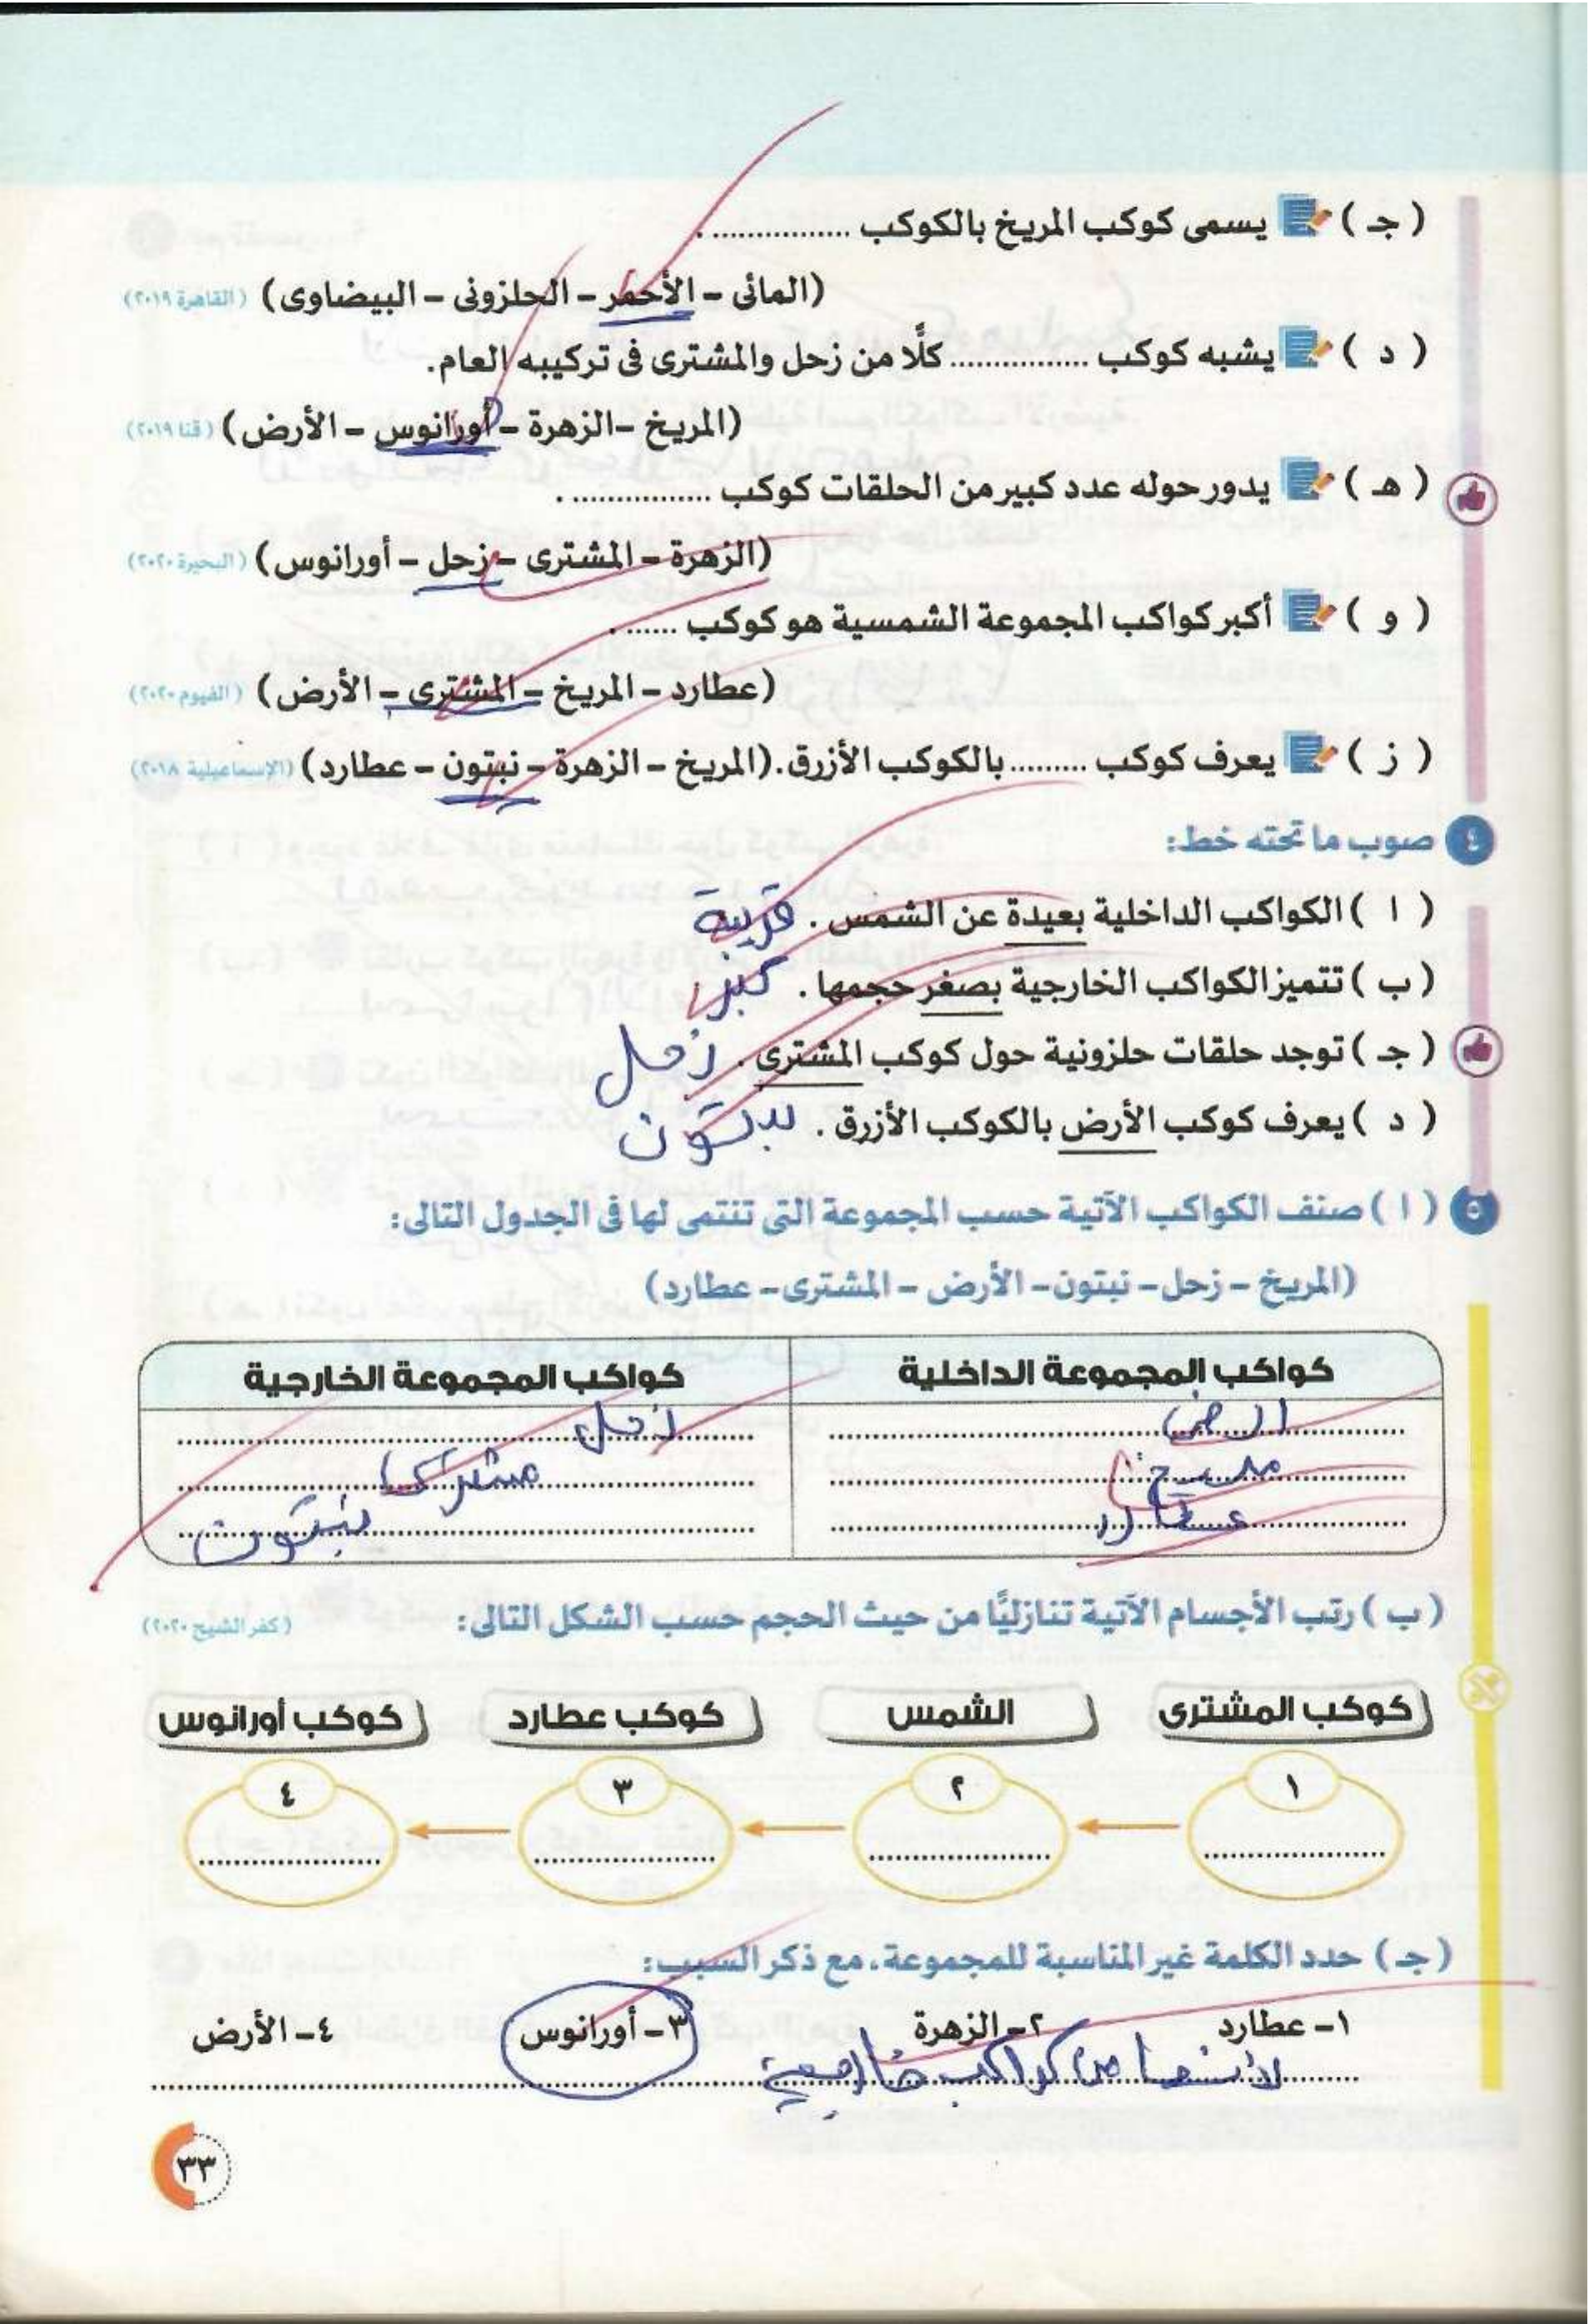 ( جـ ) يسمى كوكب المريخ بالكوكب ................ .
(المائى – الأحمر – الحلزونى – البيضاوى) (القاهرة ٢٠١٩)
( د ) يشبه كوكب ................ كلًّا من زحل والمشترى فى تركيبه العام.
(المريخ –الزهرة – أورانوس – الأرض) (قنا ٢٠١٩)
( هـ ) يدور حوله عدد كبير من الحلقات كوكب ................ .
(الزهرة – المشترى – زحل – أورانوس) (البحيرة ٢٠٢٠)
( و ) أكبر كواكب المجموعة الشمسية هو كوكب ...... .
(عطارد – المريخ – المشترى – الأرض) (الفيوم ٢٠٢٠)
( ز ) يعرف كوكب ......... بالكوكب الأزرق. (المريخ – الزهرة – نبتون – عطارد) (الإسماعيلية ٢٠١٨)
٤ صوب ما تحته خط:
( ا ) الكواكب الداخلية بعيدة عن الشمس . قريبة
( ب ) تتميز الكواكب الخارجية بصغر حجمها . كبر
( جـ ) توجد حلقات حلزونية حول كوكب المشترى . زحل
( د ) يعرف كوكب الأرض بالكوكب الأزرق . نبتون
٥ ( ا ) صنف الكواكب الآتية حسب المجموعة التى تنتمى لها فى الجدول التالى:
(المريخ – زحل – نبتون – الأرض – المشترى – عطارد)
كواكب المجموعة الداخلية كواكب المجموعة الخارجية
الارض زحل
مريخ مشترى
عطارد نبتون
( ب ) رتب الأجسام الآتية تنازليًّا من حيث الحجم حسب الشكل التالى: (كفر الشيخ ٢٠٢٠)
كوكب المشترى الشمس كوكب عطارد كوكب أورانوس
١ ٢ ٣ ٤
( جـ ) حدد الكلمة غير المناسبة للمجموعة، مع ذكر السبب:
١– عطارد ٢– الزهرة ٣– أورانوس ٤– الأرض
لانها من كواكب خارجية
٣٣